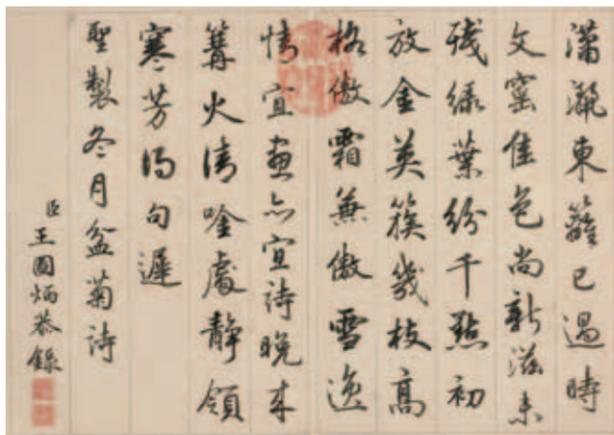 瀟灑東籬已過時
文窰佳色尚新滋未
殘綠葉紛千點初
放金英簇幾枝高
格傲霜兼傲雪逸
情宜畫亦宜詩晚來
篝火清吟處靜領
寒芳得句遲
聖製冬月盆菊詩
臣王圖炳恭錄